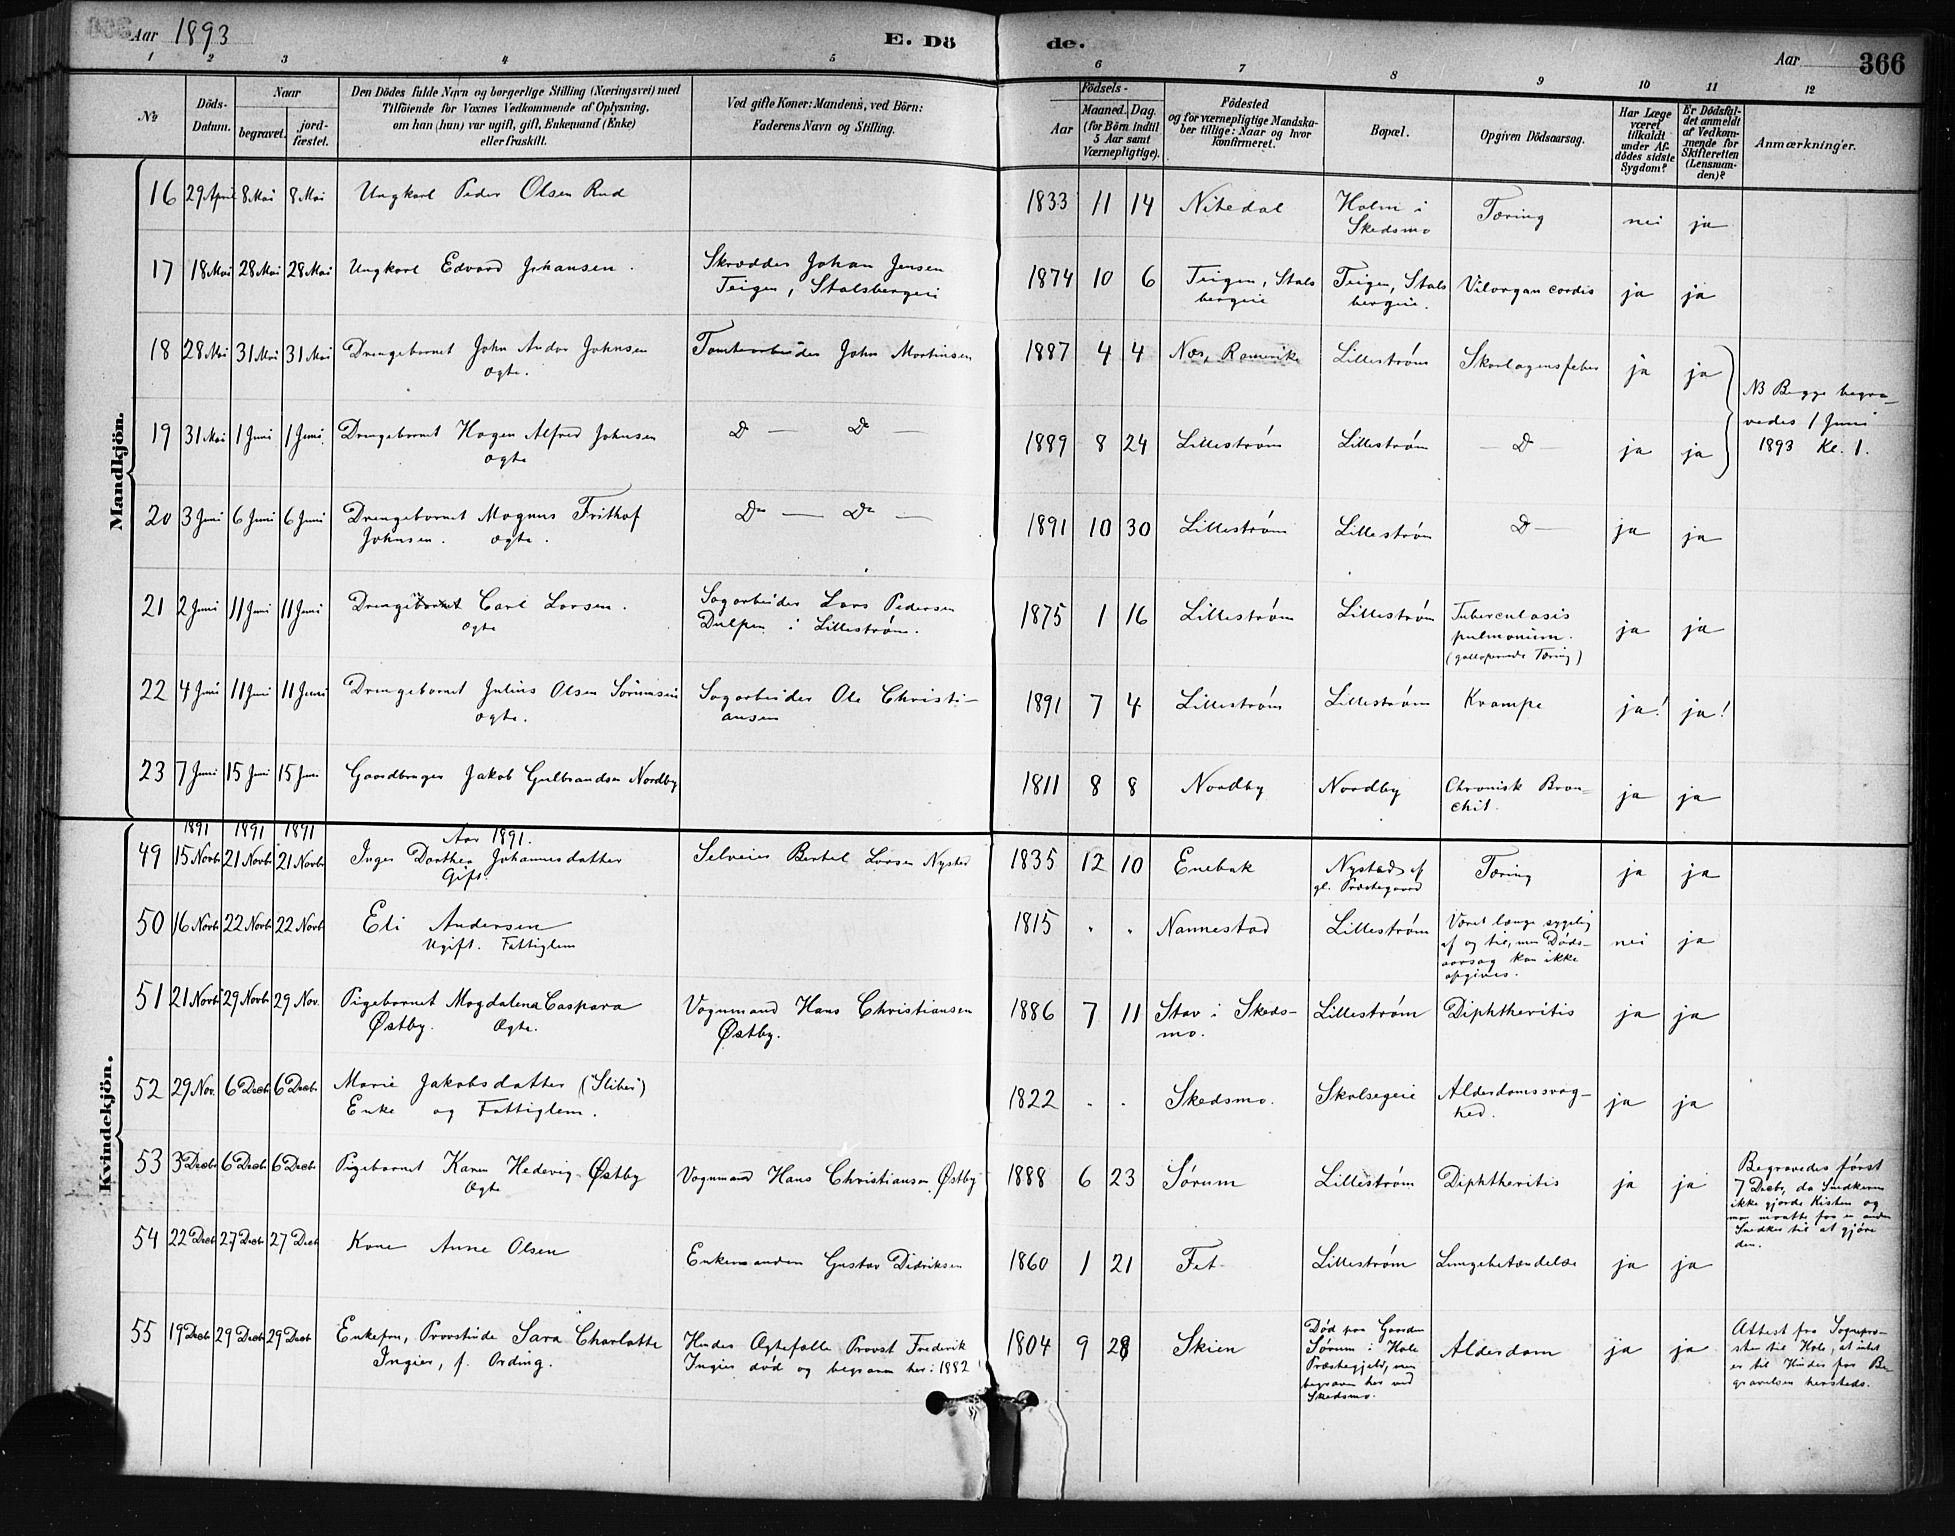 Aar 1893
E. Dö
de.
Aar 366
1 2 3 4 5 6 7 8 9 10 11 12
№
Döds-
Datum.
Naar
begravet.
jord-
fæstet.
Den Dödes fulde Navn og borgerlige Stilling (Næringsvei) med
Tilföiende for Voxnes Vedkommende af Oplysning,
om han (hun) var ugift, gift, Enkemand (Enke)
eller fraskilt.
Ved gifte Koner: Mandens, ved Börn:
Faderens Navn og Stilling.
Födsels-
Aar
Maaned. Dag.
(for Börn indtil
5 Aar samt
Værnepligtige).
Födested
og for værnepligtige Mandska-
ber tillige: Naar og hvor
konfirmeret.
Bopæl.
Opgiven Dödsaarsag.
Har Læge
været
tilkaldt
under Af-
dödes sidste
Sygdom?
Er Dödsfal-
det anmeldt
af Vedkom-
mende for
Skifteretten
(Lensman-
den)?
Anmærkninger.
Mandkjön.
16 29 April 8 Mai 8 Mai Ungkarl Peder Olsen Rud 1833 11 14 Nitedal Holm i Tæring nei ja
Skedsmo
17 18 Mai 28 Mai 28 Mai Ungkarl Edvard Johansen. Skrædder Johan Jensen 1874 10 6 Teigen, Stals Teigen, Stals Vilorgan cordis ja ja
Teigen, Stalsbergeie bergeie bergeie.
18 28 Mai 31 Mai 31 Mai Drengebarnet John Andor Johnsen Tomtearbeider John Martinsen 1887 4 4 Nes, Romerike Lillestrøm Skarlagensfeber ja ja
ægte.
NB Begge begra-
vedes 1 Juni
1893 Kl. 1.
19 31 Mai 1 Juni 1 Juni Drengebarnet Hagen Alfred Johnsen D — Do — 1889 8 24 Lillestrøm Lillestrøm — D — ja ja
ægte
20 3 Juni 6 Juni 6 Juni Drengebarnet Magnus Frithof Do — Do — 1891 10 30 Lillestrøm Lillestrøm D — ja ja
Johnsen. ægte.
21 2 Juni 11 Juni 11 Juni Drengebarnet Carl Larsen. Sagarbeider Lars Pedersen 1875 1 16 Lillestrøm Lillestrøm Tuberculosis ja ja
ægte Dulpen i Lillestrøm. pulmonum.
(galloperende Tæring)
22 4 Juni 11 Juni 11 Juni Drengebarnet Julius Olsen Sørumseie Sagarbeider Ole Christi- 1891 7 4 Lillestrøm Lillestrøm Krampe ja! ja!
ægte. ansen
23 7 Juni 15 Juni 15 Juni Gaardbruger Jakob Gulbrandsen Nordby 1811 8 8 Nordby Nordby Chronisk Bron- ja ja
chit.
Kvindekjön.
1891 1891 1891 Aar 1891.
49 15 Novb 21 Novb 21 Novb Inger Dorthea Johannesdatter Selveier Bertel Larsen Nystad 1835 12 10 Enebak Nystad af Tæring ja ja
Gift. gl. Præstegaard
50 16 Novb 22 Novb 22 Novb Eli Andersen 1815 . . Nannestad Lillestrøm Været længe sygelig nei ja
Ugift. Fattiglem af og til, men Døds-
aarsag kan ikke
opgives.
51 21 Novb 29 Novb 29 Nov. Pigebarnet Magdalena Caspara Vognmand Hans Christiansen 1886 7 11 Stav i Skeds- Lillestrøm Diphtheritis ja ja
Østby. Ægte. Østby. mo.
52 29 Nov. 6 Decb 6 Decb Marie Jakobsdatter (Sliber) 1822 . . Skedsmo. Skolsegeie Alderdomssvag- ja ja
Enke og Fattiglem. hed.
53 3 Decb 6 Decb 6 Decb Pigebarnet Karen Hedevig Østby Vognmand Hans Christiansen Østby 1888 6 23 Sørum Lillestrøm Diphtheritis ja ja
Ægte
Begravedes først
7 Decb, da Snedkeren
ikke gjorde Kisten og
man maatte faa en anden
Snedker til at gjøre
den.
54 22 Decb 27 Decb 27 Decb Kone Anne Olsen Enkemanden Gustav Didriksen 1860 1 21 Fet Lillestrøm Lungebetændelse ja ja
55 19 Decb 29 Decb 29 Decb Enkefru, Provstinde Sara Charlotte Hendes Ægtefælle Provst Frederik 1804 9 28 Skien Død paa Gaarden Alderdom ja ja
Ingier, f. Ording. Ingier død og begraven her i 1882
Sørum i Hole
Præstegjeld, men
begraven her ved
Skedsmo.
Attest fra Sognepre-
sten til Hole, at intet
er til Hinder for Be-
gravelsen hersteds.